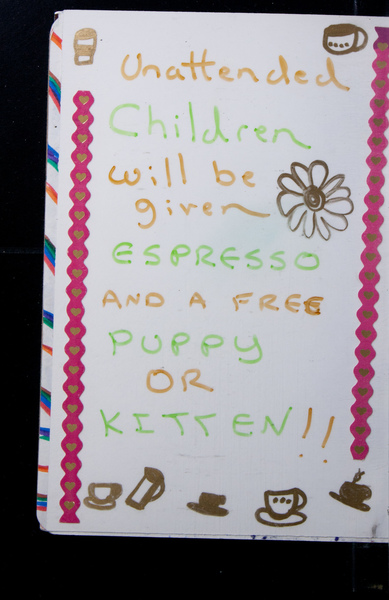 Unattended
Children
will be
given
ESPRESSO
AND A FREE
PUPPY
OR
KITTEN!!